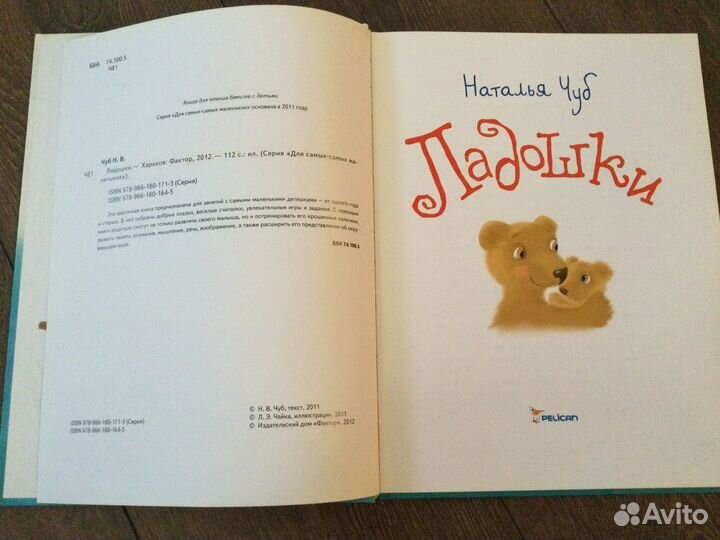 ББК 74.100.5
Ч81
Книга для чтения вместе с детьми
Серия «Для самых-самых маленьких» основана в 2011 году
Чуб Н. В.
Ч81 Ладошки.— Харьков: Фактор, 2012.— 112 с.: ил. (Серия «Для самых-самых ма-
леньких»).
ISBN 978-966-180-171-3 (Серия)
ISBN 978-966-180-164-5
Эта красочная книга предназначена для занятий с самыми маленькими детишками — от одного года
и старше. В ней собраны добрые сказки, веселые считалки, увлекательные игры и задания. С помощью
книги родители смогут не только развлечь своего малыша, но и потренировать его крошечные пальчики,
развить память, внимание, мышление, речь, воображение, а также расширить его представление об окру-
жающем мире.
ББК 74.100.5
ISBN 978-966-180-171-3 (Серия)
ISBN 978-966-180-164-5
© Н. В. Чуб, текст, 2011
© Л. Э. Чайка, иллюстрации, 2011
© Издательский дом «Фактор», 2012
Наталья Чуб
Ладошки
PELICAN
Avito